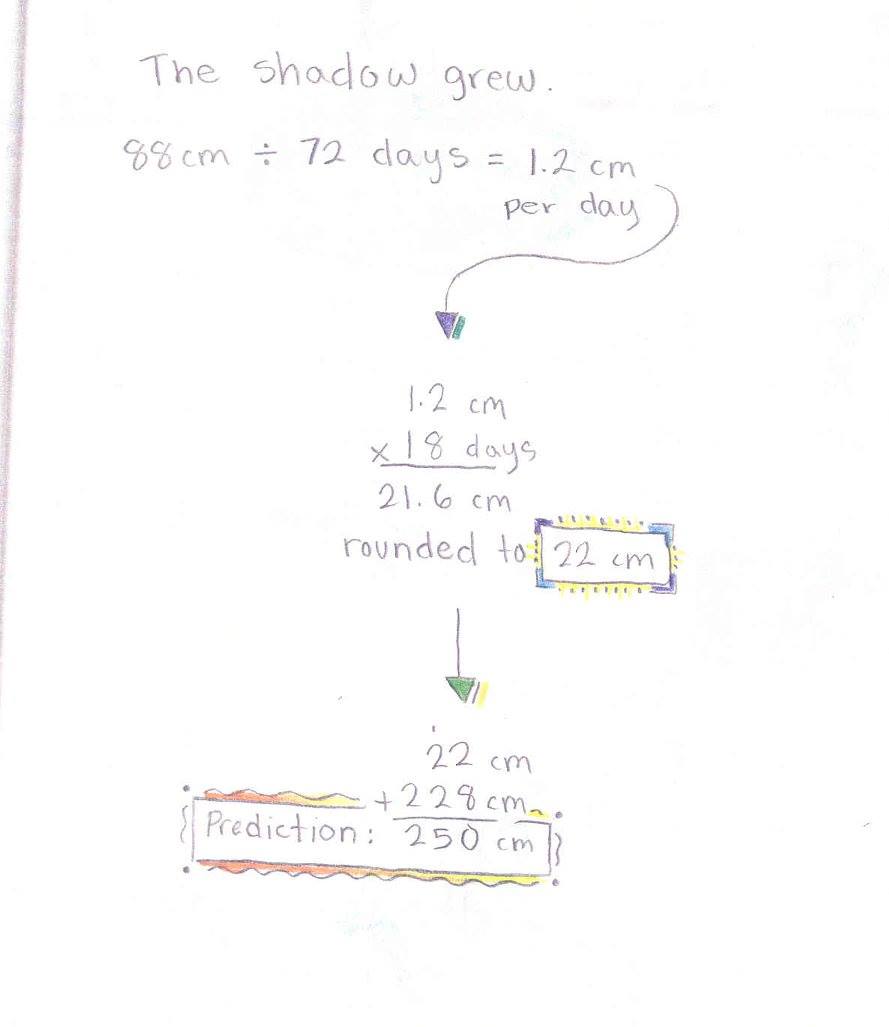 The shadow grew.
88 cm ÷ 72 days = 1.2 cm
per day
1.2 cm
x 18 days
21.6 cm
rounded to 22 cm
1
22 cm
+ 228 cm
Prediction: 250 cm